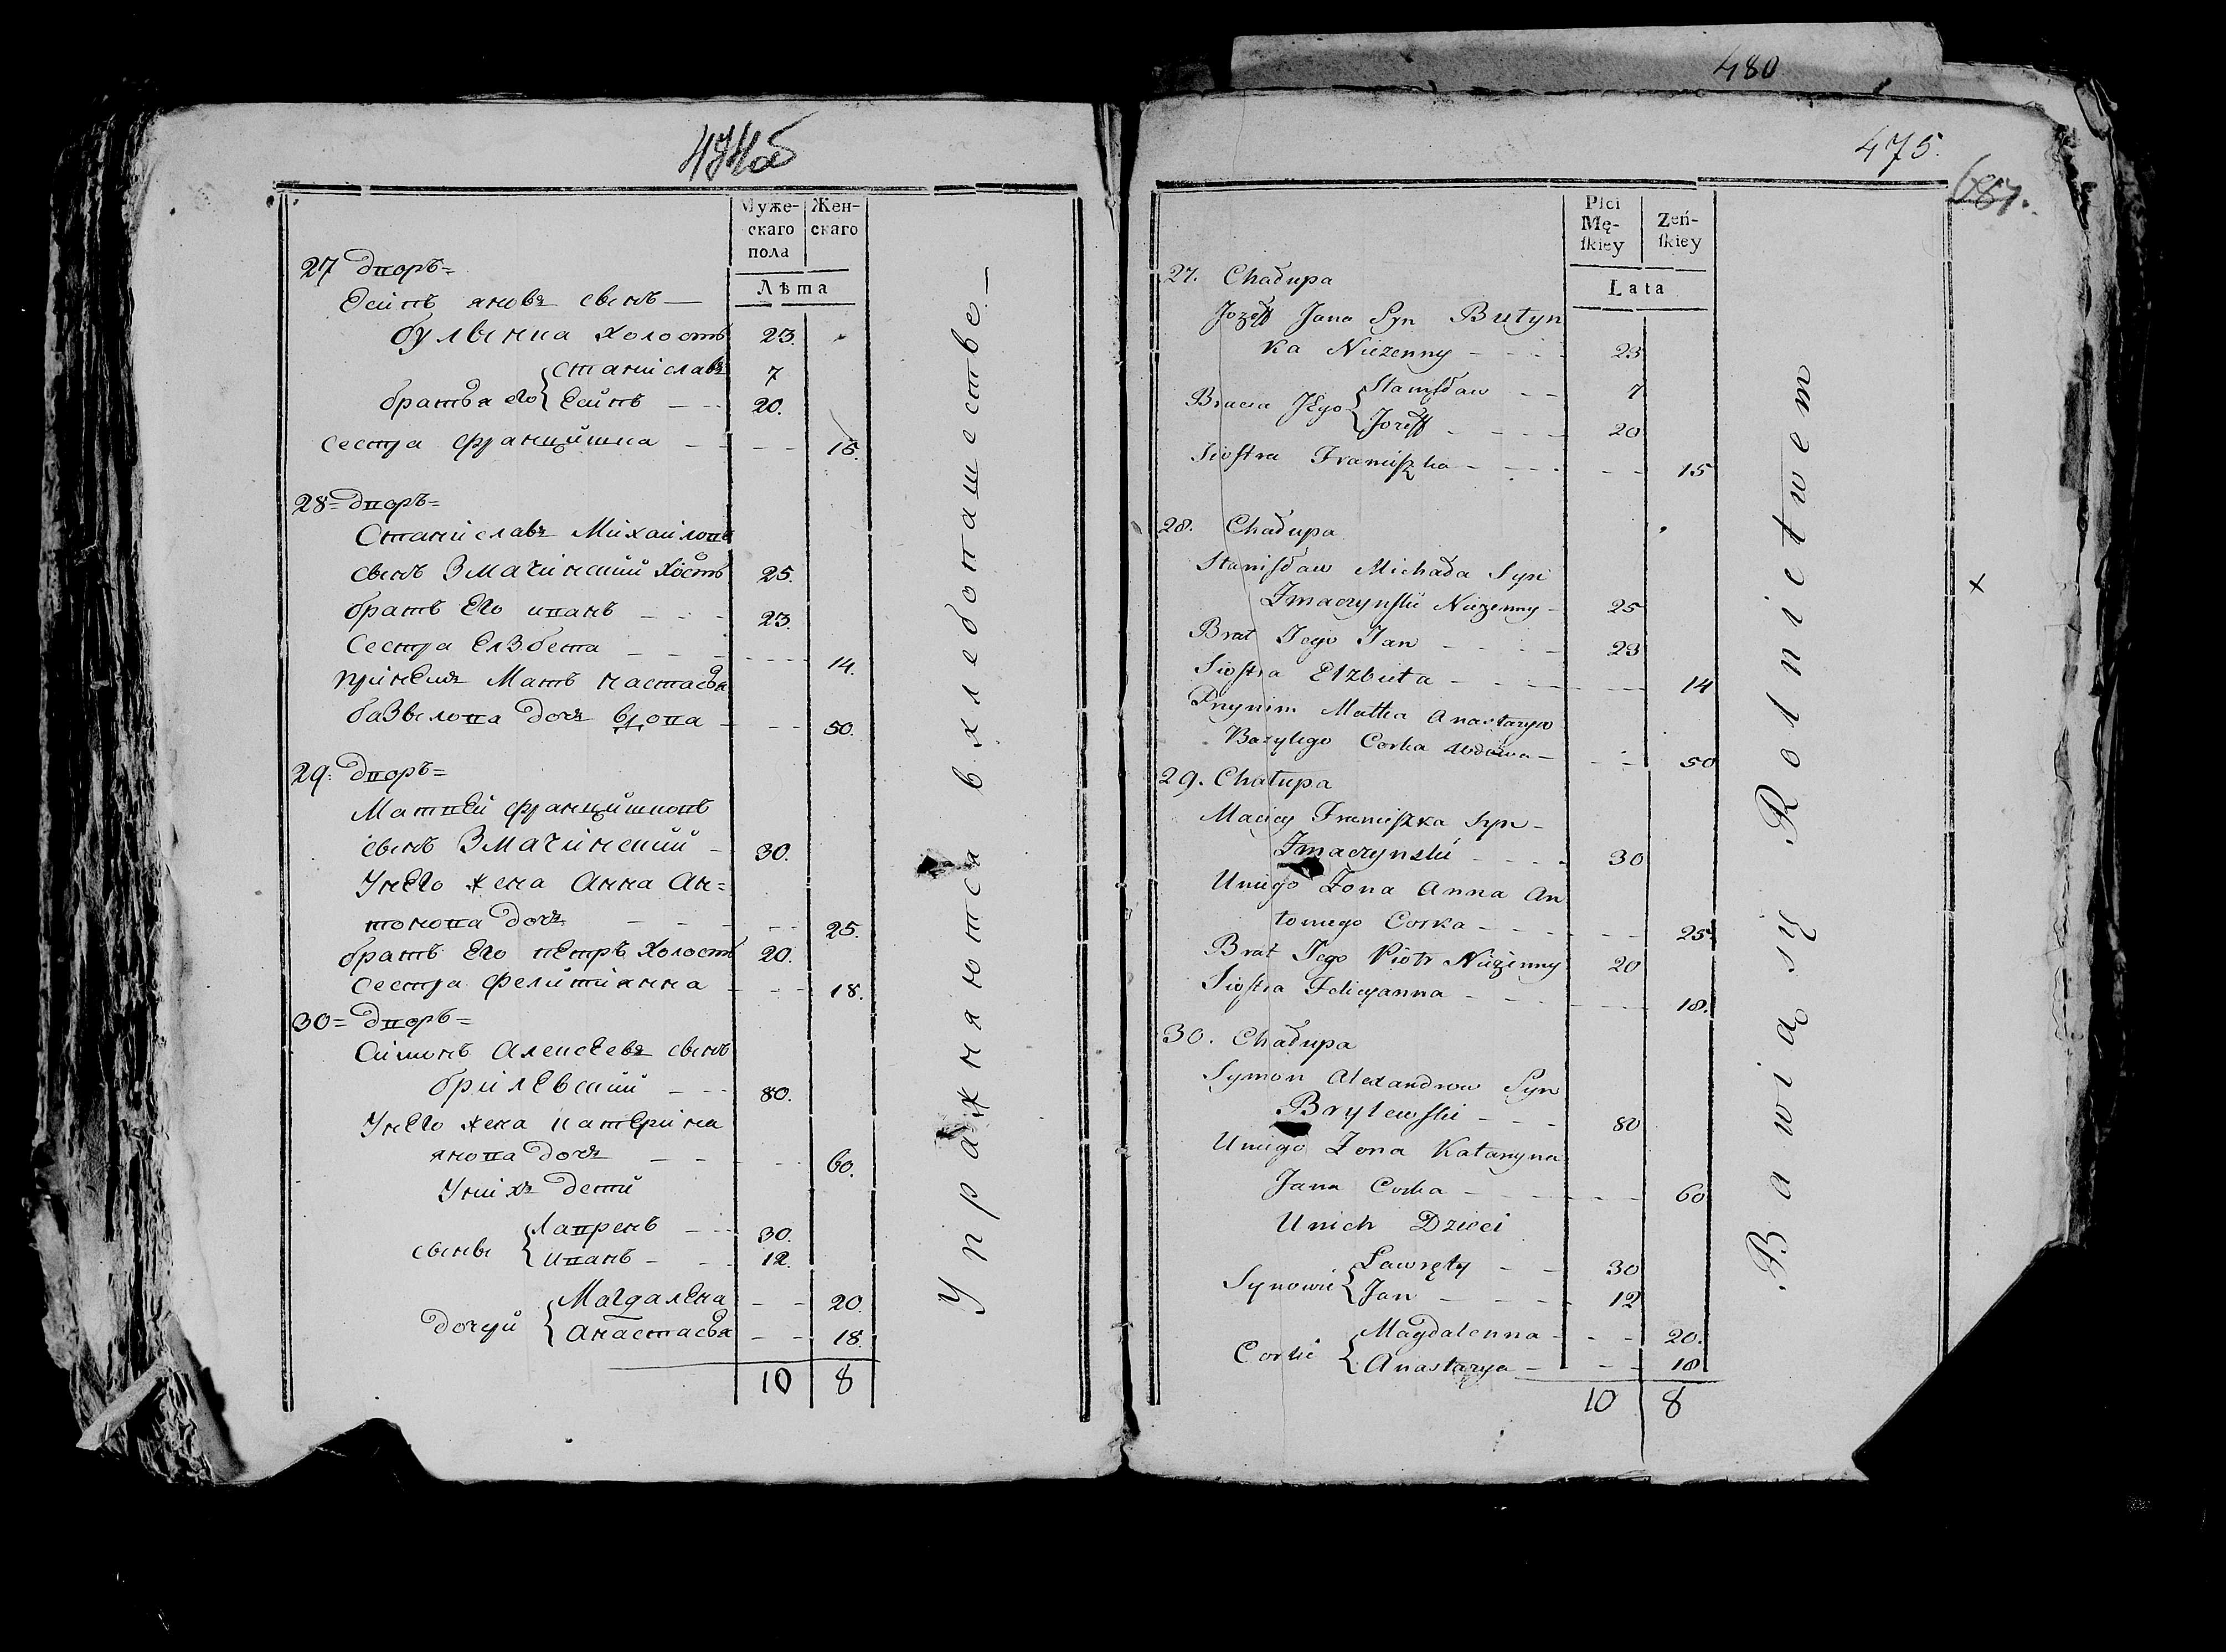 474об
Муже-
скаго
пола
Жен-
скаго
Лѣта
27 дворъ=
Есипъ яновъ сынъ —
булынка холостъ 23.
Станиславъ 7
братья его { Есипъ — 20.
сестра францишка — 15.
28= дворъ=
Станиславъ Михаиловъ
сынъ Змачинский хостъ 25.
братъ Его иванъ — 23.
Сестра Елзбета — 14.
при нем Мать настасья
базылова дочь — 50.
29: дворъ=
Матвей францишковъ
сынъ Змачинский — 30.
У него жена Анна Ан=
тонова дочь — 25.
братъ Его петръ холостъ 20.
сестра фелитианна — 18.
30= дворъ=
Симонъ Алексеевъ сынъ
брилевский — 80.
У него жена катерина
янова дочь — 60.
У них дети
сыны { Лавренъ — 30.
иванъ — 12.
дочери { Магдалена — 20.
Анастасья — 18.
10 8
Упражняются в хлебопашестве. —
480
475.
Płci
Mę-
ſkiey
Żeń-
ſkiey
Lata
27. Chałupa
Jozeff Jana Syn Butyn
ka Nieżenny — 23
Bracia Jego { Stanisław — 7
Jozeff — 20
Siostra Franciszka — 15
28. Chałupa
Stanisław Michała Syn
Zmaczynski Nieżenny — 25
Brat Jego Jan — 23
Siostra Elzbieta — 14
Przynim Matka Anastazya
Bazylego Corka wdowa — 50
29. Chałupa
Maciey Franciszka Syn —
Zmaczynski — 30
Uniego Zona Anna An
toniego Corka — 25
Brat Jego Piotr Nieżenny 20
Siostra Felicyanna — 18.
30. Chałupa
Symon Alexandrow Syn
Brylewski — 80
Uniego Zona Katarzyna
Jana Corka — 60
Unich Dzieci
Synowie { Ławręty — 30
Jan — 12
Corki { Magdalenna — 20.
Anastazya — 18
10 8
Bawią się Rolnictwem
x